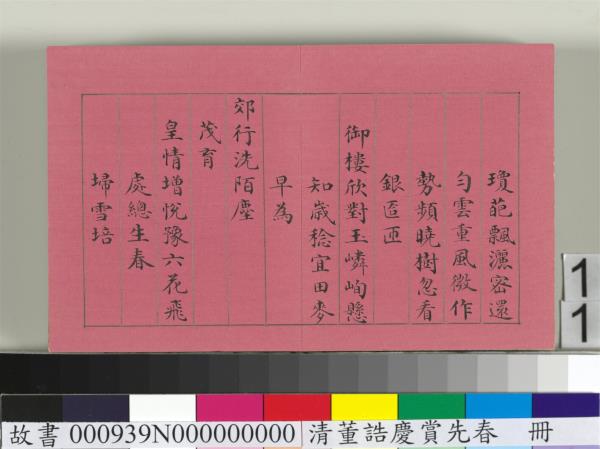 瓊葩飄灑密還
勻雲重風微作
勢頻曉樹忽看
銀匼匝
御樓欣對玉嶙峋懸
知歲稔宜田麥
早為
郊行洗陌塵
茂育
皇情增悅豫六花飛
處總生春
埽雪培
1
1
故書 000939N000000000 清董誥慶賞先春 冊